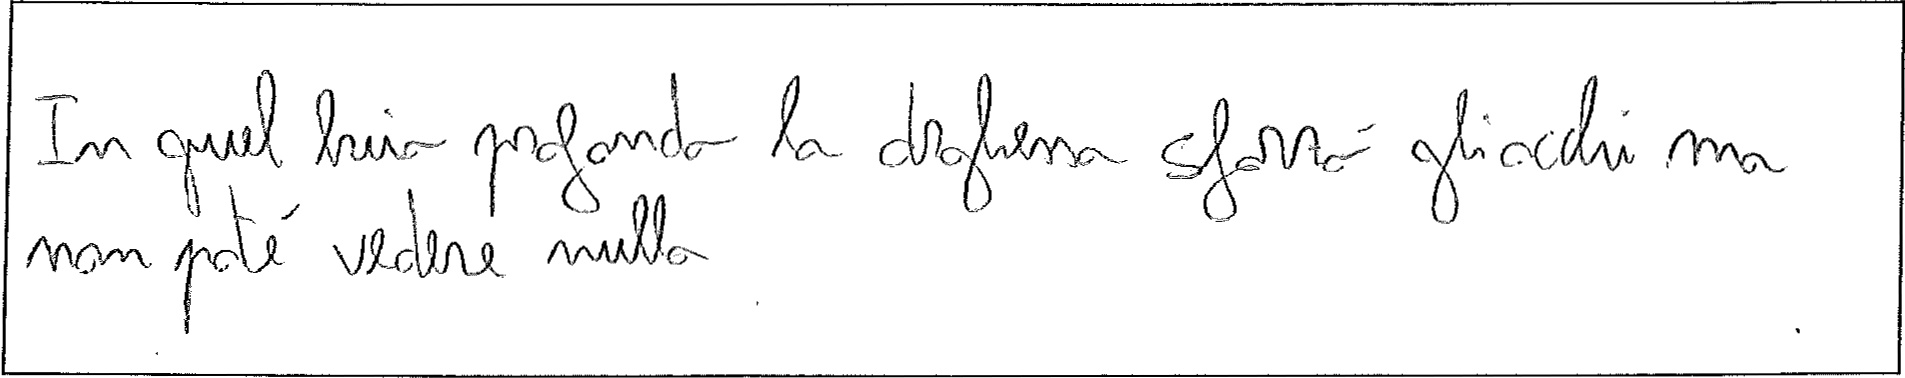 In quel buio profondo la dottoressa sforzò gli occhi ma
non poté vedere nulla